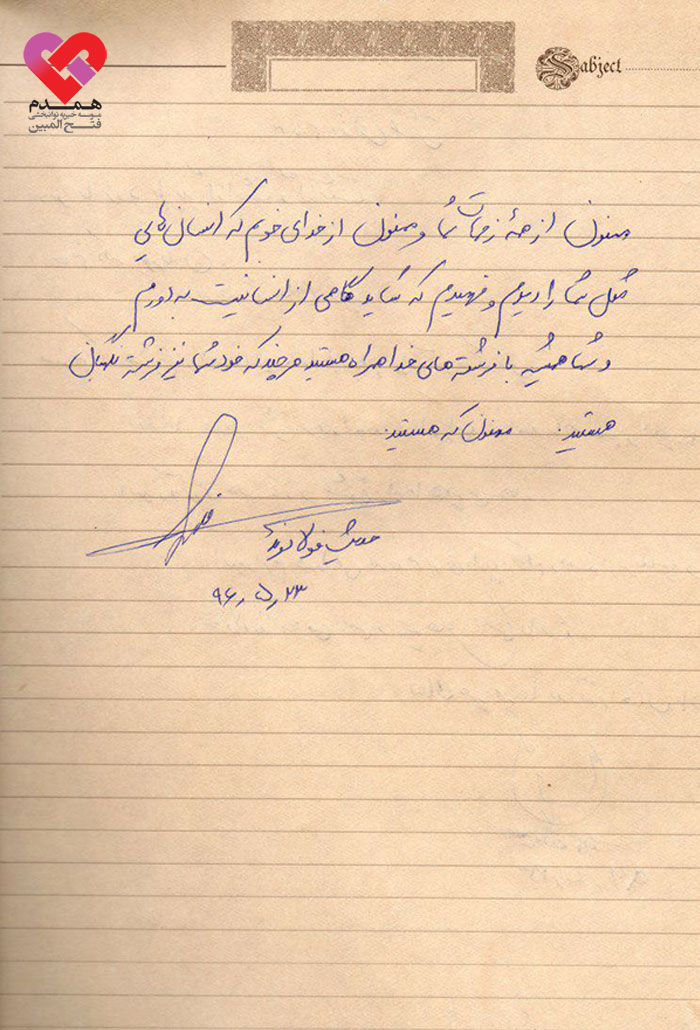 Sabject
همدم
موسسه خیریه توانبخشی
فتح المبین
ممنون از همهٔ زحمات شما و ممنون از خدای خودم که انسان‌هایی
مثل شما را دیدم و فهمیدم که شاید کاهی از انسانیت به دورم
و شما همیشه با فرشته های خدا همراه هستید هر چند که خود شما نیز فرشته نگهبان
هستید. ممنون که هستید.
حدیث فولادوند
۹۶٫۵٫۲۳